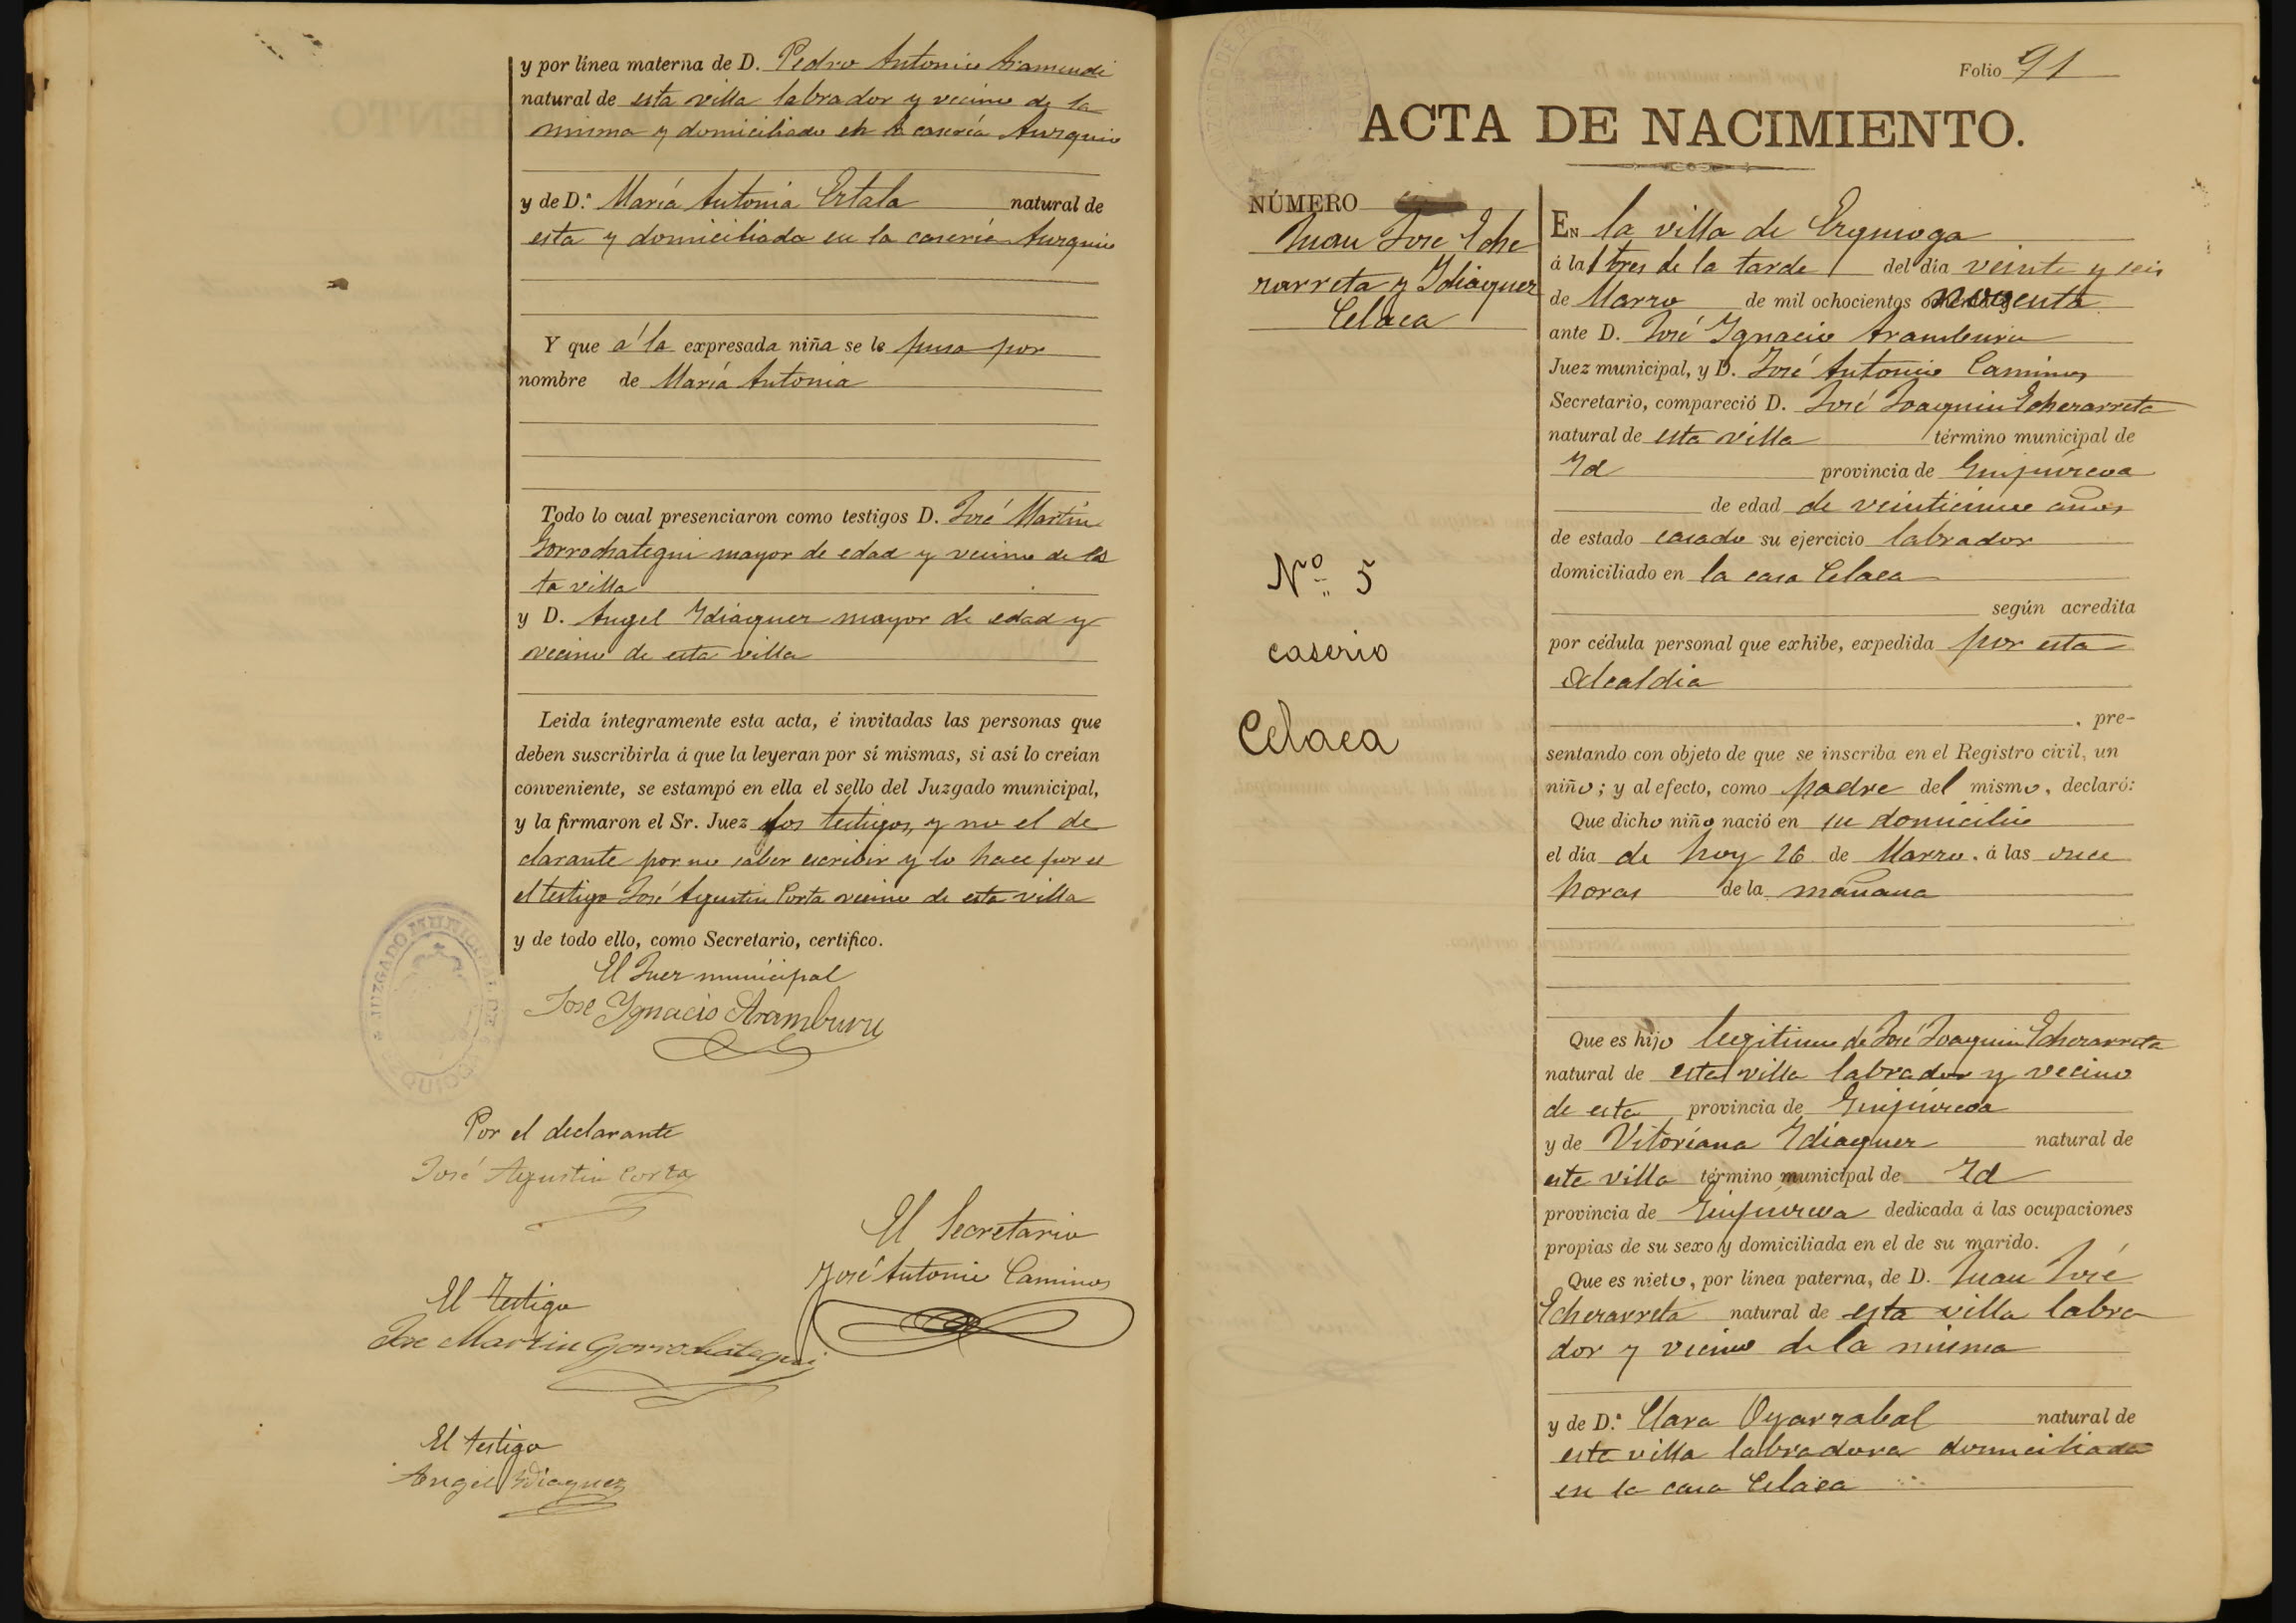 y por línea materna de D. Pedro Antonio Aramendi
natural de esta villa labrador y vecino de la
misma y domiciliado en la casería Aurquio
y de D.ª María Antonia Ertala natural de
esta y domiciliada en la casería Aurquio
Y que á la expresada niña se le puso por
nombre de María Antonia
Todo lo cual presenciaron como testigos D. José Martin
Gorrochategui mayor de edad y vecino de es
ta villa
y D. Angel Ydiaquez mayor de edad y
vecino de esta villa
Leida íntegramente esta acta, é invitadas las personas que
deben suscribirla á que la leyeran por sí mismas, si así lo creían
conveniente, se estampó en ella el sello del Juzgado municipal,
y la firmaron el Sr. Juez los testigos, y no el de
clarante por no saber escribir y lo hace por el
el testigo José Agustin Corta vecino de esta villa
y de todo ello, como Secretario, certifico.
JUZGADO MUNICIPAL DE
El Juez municipal
Jose Ygnacio Aramburu
Por el declarante
José Agustin Corta
El Secretario
José Antonio Caminos
El testigo
Jose Martin Gorrochategui
El testigo
Angel Ydiaquez
Folio 91
ACTA DE NACIMIENTO.
NÚMERO
Juan José Eche
zarreta y Ydiaquez
Celaea
Nº 5
caserio
Celaea
EN la villa de Ezquioga
á las tres de la tarde del día veinte y seis
de Marzo de mil ochocientos noventa
ante D. José Ygnacio Aramburu
Juez municipal, y D. José Antonio Caminos
Secretario, compareció D. José Joaquin Echezarreta
natural de esta villa término municipal de
Yd provincia de Guipúzcoa
de edad de veinticinco años
de estado casado su ejercicio labrador
domiciliado en la casa Celaea
según acredita
por cédula personal que exhibe, expedida por esta
Alcaldia
, pre-
sentando con objeto de que se inscriba en el Registro civil, un
niño; y al efecto, como padre del mismo, declaró:
Que dicho niño nació en su domicilio
el día de hoy 26 de Marzo, á las once
horas de la mañana
Que es hijo legitimo de José Joaquin Echezarreta
natural de esta villa labrador y vecino
de esta provincia de Guipúzcoa
y de Vitoriana Ydiaquez natural de
esta villa término municipal de Yd
provincia de Guipúzcoa dedicada á las ocupaciones
propias de su sexo y domiciliada en el de su marido.
Que es nieto, por línea paterna, de D. Juan José
Echezarreta natural de esta villa labra
dor y vecino de la misma
y de D.ª Clara Oyarzabal natural de
esta villa labradora domiciliada
en la casa Celaea